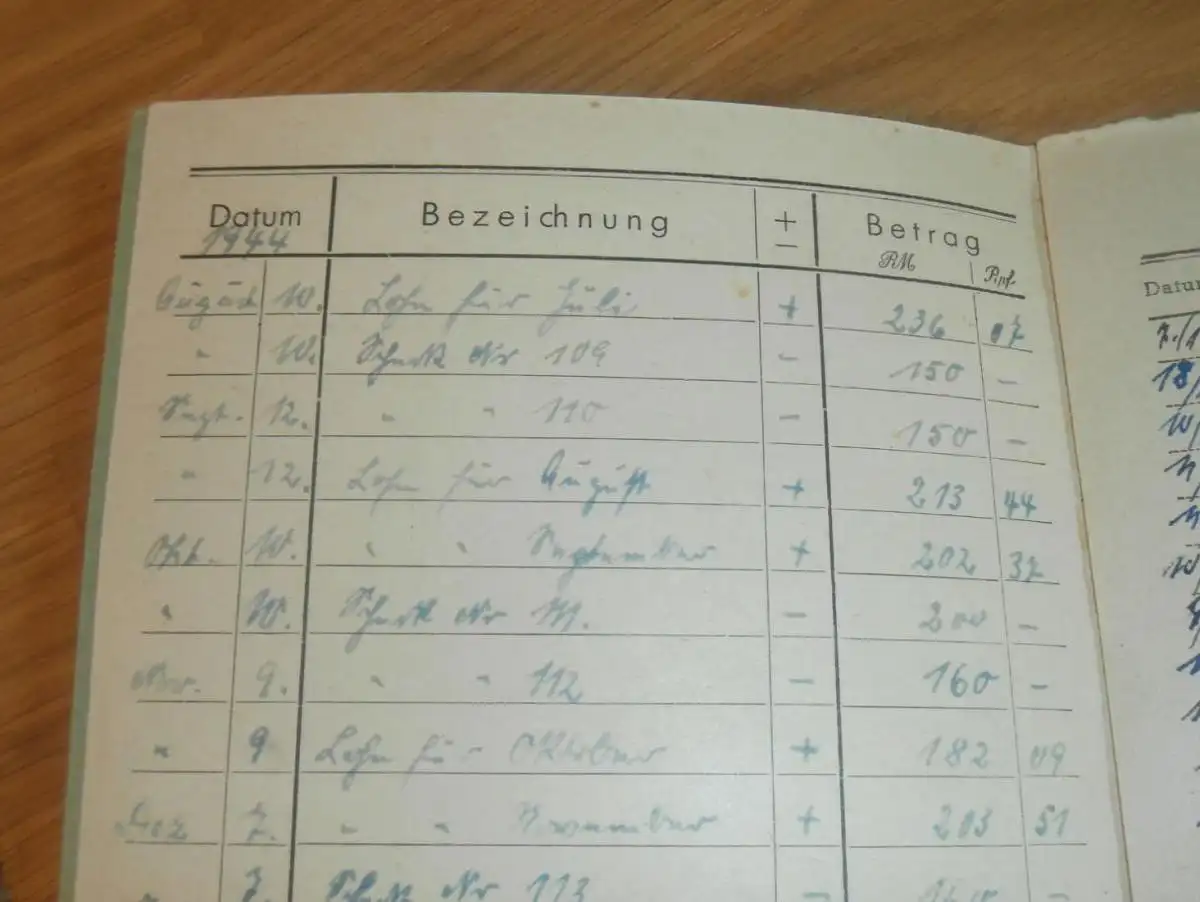 Datum Bezeichnung + − Betrag
1944 RM Rpf.
August 10. Lohn für Juli + 236 07
" 10. Scheck Nr 109 − 150 −
Sept. 12. " " 110 − 150 −
" 12. Lohn für August + 213 44
Okt. 10. " " September + 202 37
" 10. Scheck Nr 111. − 200 −
Nov. 9. " " 112 − 160 −
" 9 Lohn für Oktober + 182 09
Dez 7. " " November + 203 51
" 7. Scheck Nr 113 −
Datu
18/
10/